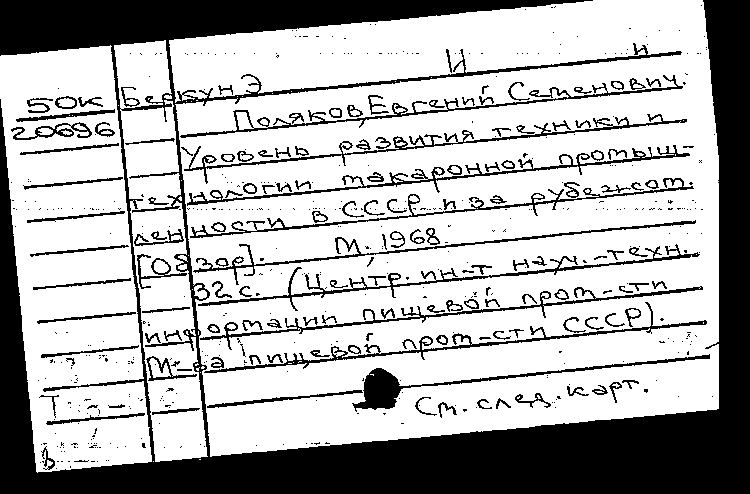 И и
50К Беркун, Э
20696 Поляков, Евгений Семенович.
Уровень развития техники и
технологии макаронной промыш-
ленности в СССР и за рубежом.
[Обзор]. М., 1968.
32 с. (Центр. ин-т науч.-техн.
информации пищевой пром-сти
М-ва пищевой пром-сти СССР).
См. след. карт.